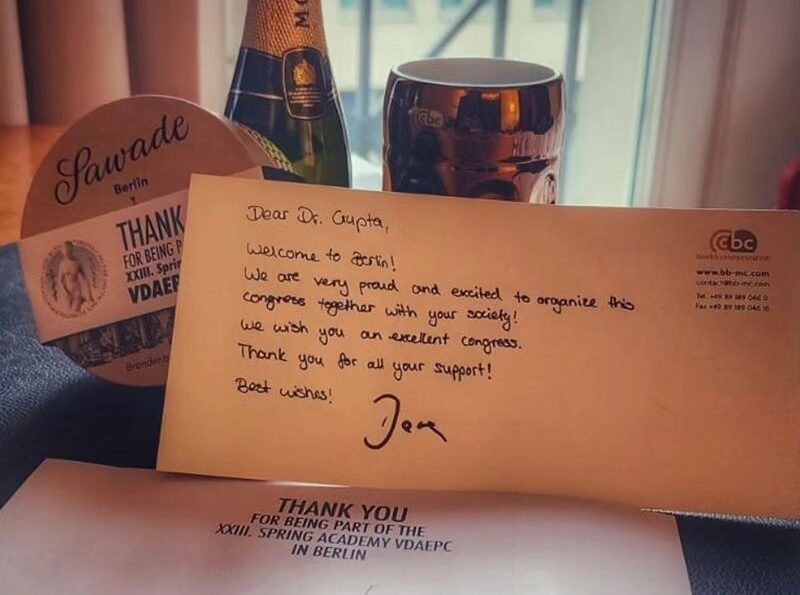 Sawade
Berlin
THANK
FOR BEING PA
XXIII. Spring
VDAEP
Brandenb
MO
cbc
Dear Dr. Gupta,
Welcome to Berlin!
We are very proud and excited to organize this
congress together with your society!
We wish you an excellent congress.
Thank you for all your support!
Best wishes!
cbc
www.bb-mc.com
contact@bb-mc.com
Tel. +49 89 189 046 0
Fax +49 89 189 046 16
THANK YOU
FOR BEING PART OF THE
XXIII. SPRING ACADEMY VDAEPC
IN BERLIN